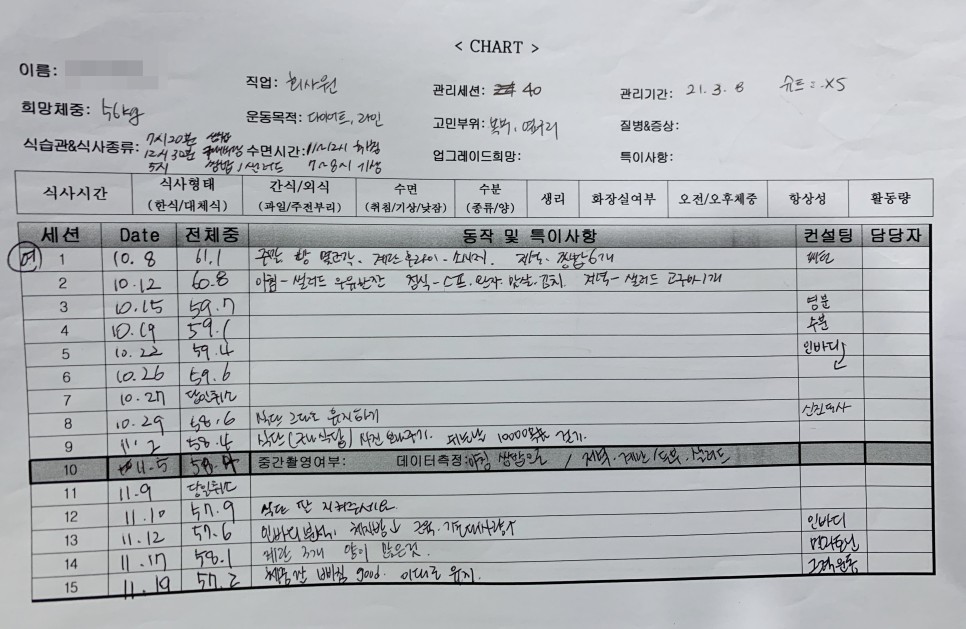 < CHART >
이름:
직업: 회사원
관리세션: 40
관리기간: 21. 3. 8 슈트: XS
희망체중: 56kg
운동목적: 다이어트, 라인
고민부위: 복부, 옆구리
질병&증상:
식습관&식사종류: 7시20분 쌈밥
12시30분
5시 쌈밥 / 샐러드
수면시간: 11~12시 취침
7~8시 기상
업그레이드희망:
특이사항:
식사시간 식사형태 (한식/대체식) 간식/외식 (과일/주전부리) 수면 (취침/기상/낮잠) 수분 (종류/양) 생리 화장실여부 오전/오후체중 항상성 활동량
세션 Date 전체중 동작 및 특이사항 컨설팅 담당자
1 10.8 61.1 계란후라이 - 소시지. 6개 패턴
2 10.12 60.8 아침 - 샐러드 우유반잔 점심 - 스프. 완자. 맛살. 김치. 저녁 - 샐러드 고구마1개
3 10.15 59.7 염분
4 10.19 59.1 수분
5 10.22 59.4 인바디
6 10.26 59.6
7 10.27 당일취소
8 10.29 58.6 식단 그대로 유지하기 신진대사
9 11.2 58.4 식단 사진 보내주기. 10000보 걷기.
10 11.5 58.4 중간촬영여부: 데이터측정: 아침 / 저녁. 계란/두유. 샐러드
11 11.9 당일취소
12 11.10 57.9 식단 잘 지켜주세요
13 11.12 57.6 인바디분석, 체지방↓ 근육. 기초대사량↑ 인바디
14 11.17 58.1 계란 3개 양이 많은것.
15 11.19 57.2 체중 잘 빠짐 good. 이대로 유지. 근력운동